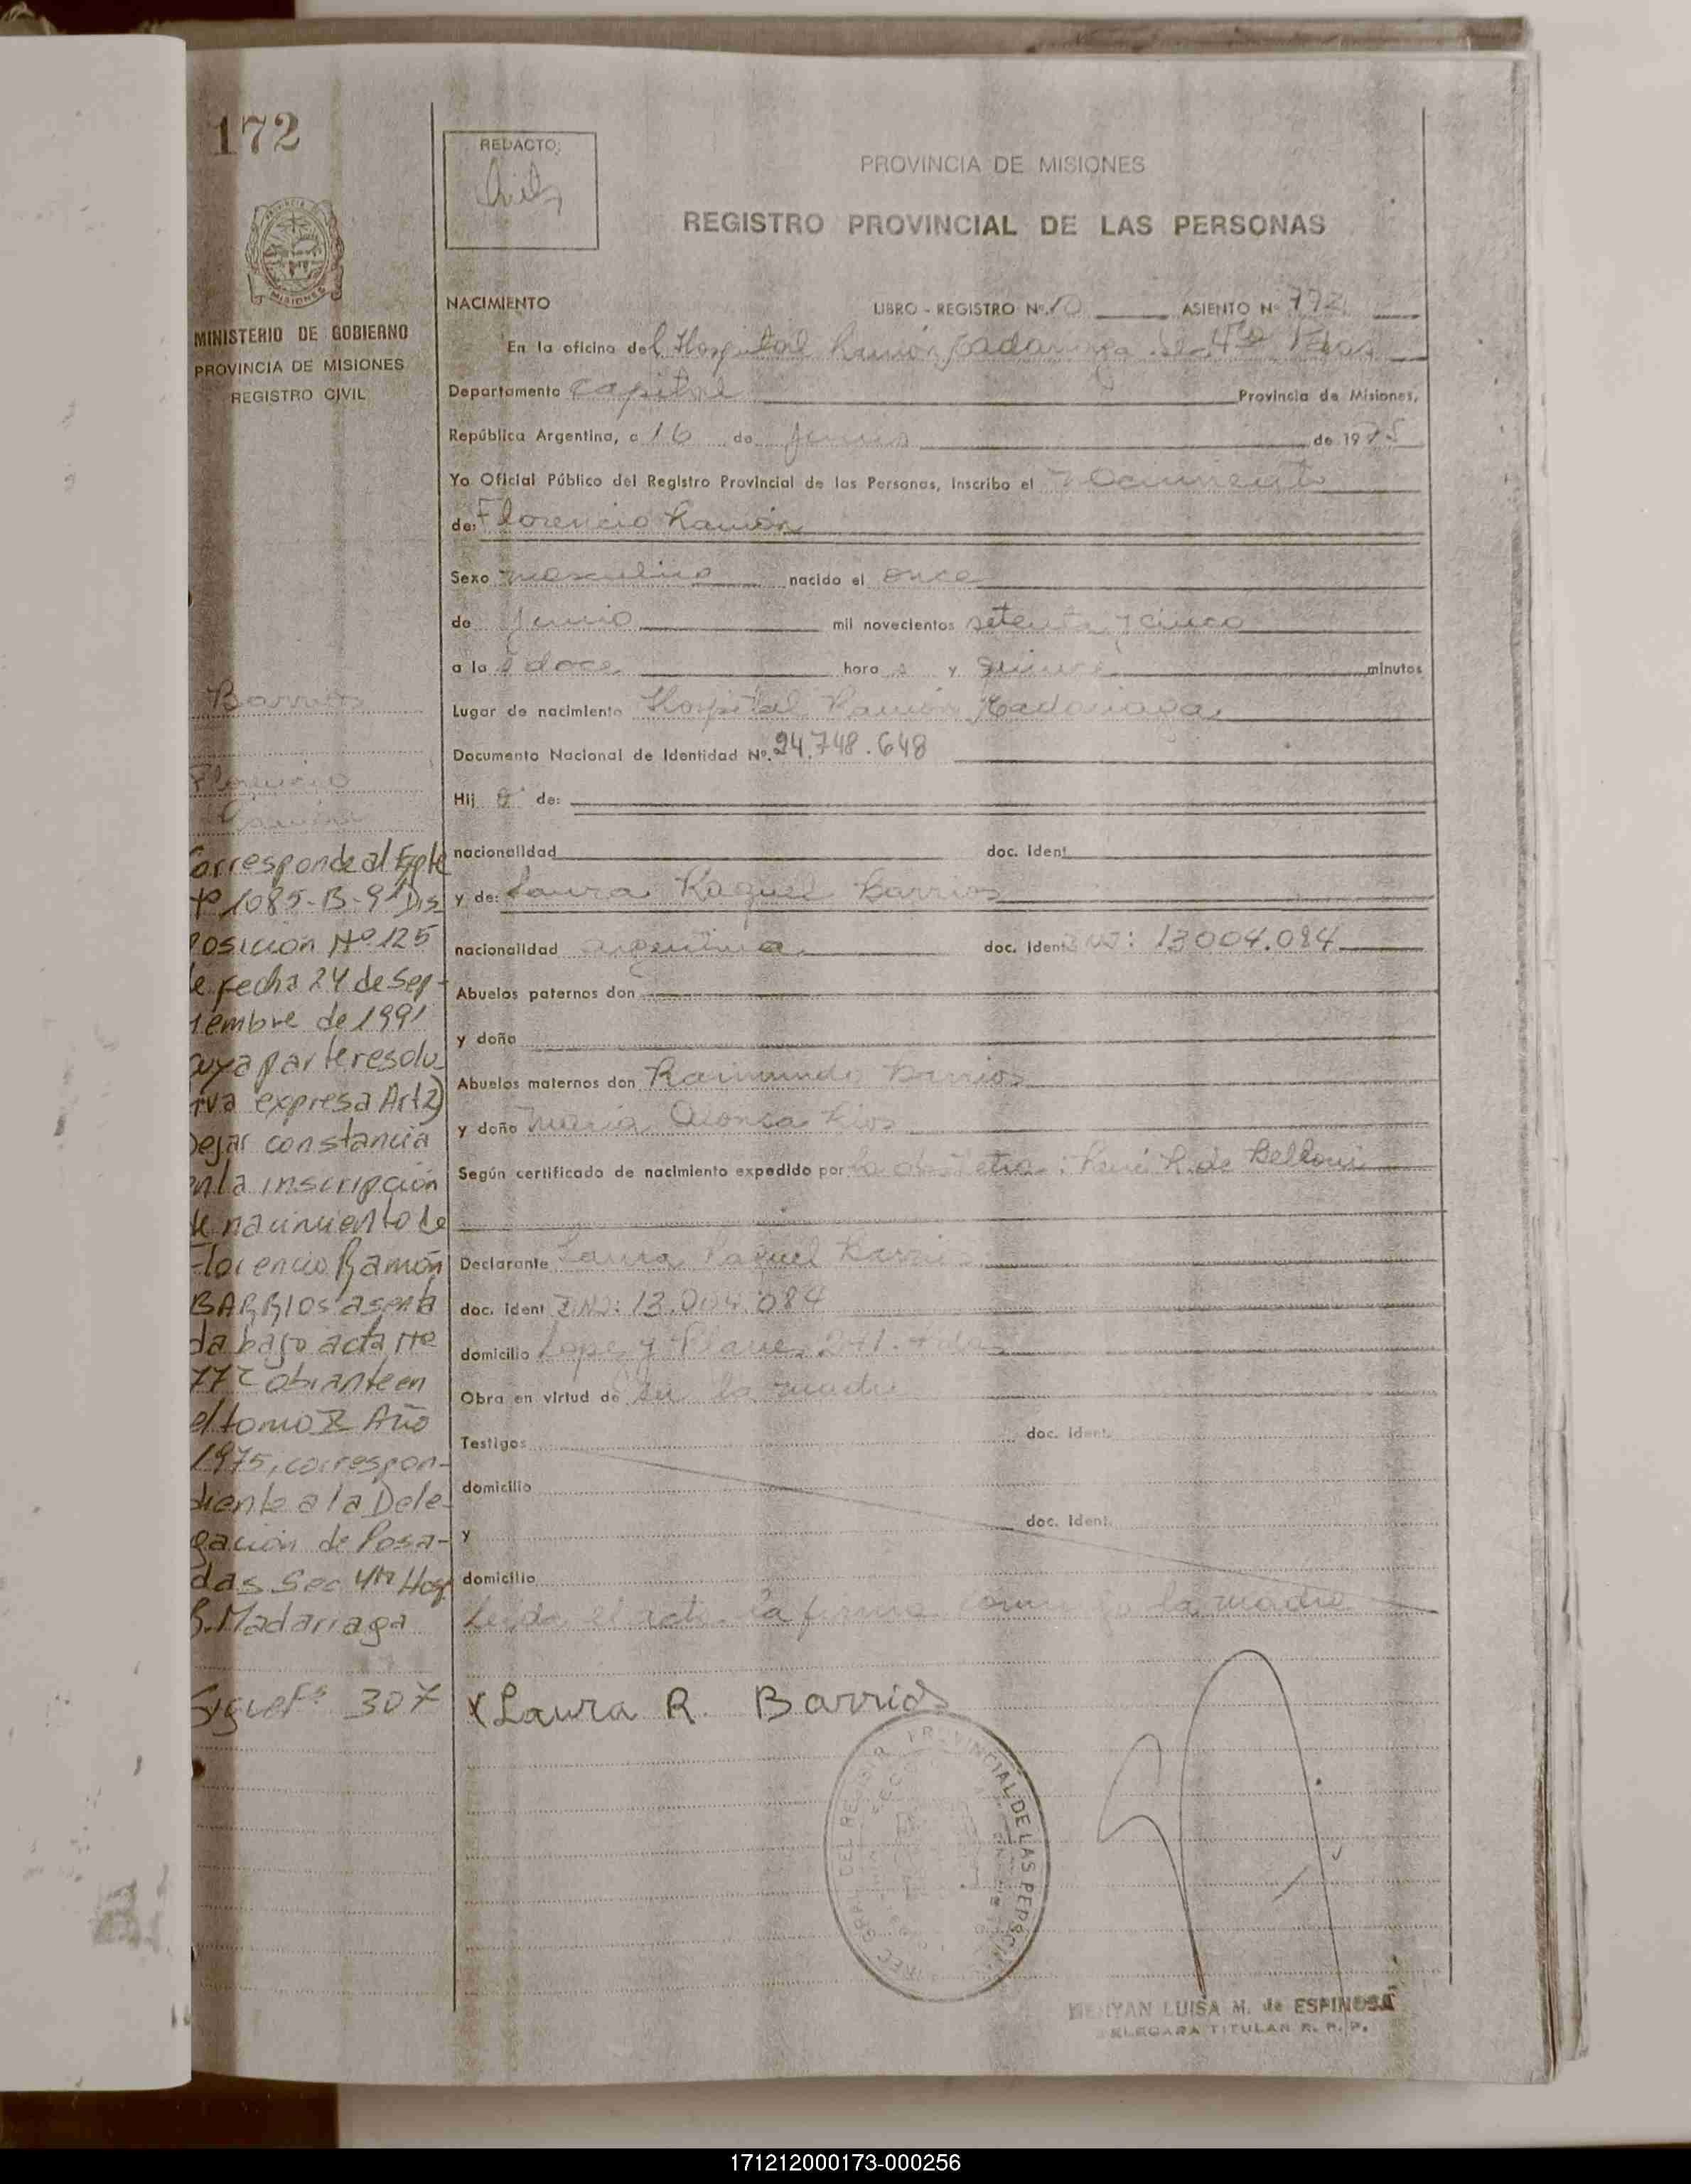 172
REDACTO:
PROVINCIA DE MISIONES
REGISTRO PROVINCIAL DE LAS PERSONAS
MISIONES
MINISTERIO DE GOBIERNO
PROVINCIA DE MISIONES
REGISTRO CIVIL
NACIMIENTO LIBRO - REGISTRO Nº. 10 ASIENTO Nº 772
En la oficina del Hospital Ramón Madariaga Sec 4ta Pdas
Departamento Capital Provincia de Misiones,
República Argentina, a 16 de Junio de 1975
Yo Oficial Público del Registro Provincial de las Personas, inscribo el nacimiento
de: Florencio Ramón
Sexo masculino nacido el once
de Junio mil novecientos setenta y cinco
a las doce horas y quince minutos
Lugar de nacimiento Hospital Ramón Madariaga
Documento Nacional de Identidad Nº. 24.748.648
Hijo de:
nacionalidad doc. ident
y de: Laura Raquel Barrios
nacionalidad argentina doc. ident DNI: 13004.084
Abuelos paternos don
y doña
Abuelos maternos don Raimundo Barrios
y doña María Rios
Según certificado de nacimiento expedido por la obstetra: R. de Belloni
Declarante Laura Raquel Barrios
doc. ident DNI: 13.004.084
domicilio Lopez y Planes 241. Pdas
Obra en virtud de ser la madre
Testigos doc. ident.
domicilio
y doc. ident.
domicilio
Leida el acta la firma conmigo la madre
x Laura R. Barrios
Barrios
Florencio
Ramón
Corresponde al Expte
Nº 1085-B-91 Dis
posición Nº 125
de fecha 24 de Sep-
tiembre de 1991
cuya parte resolu
tiva expresa Art 2)
Dejar constancia
en la inscripción
de nacimiento de
Florencio Ramón
BARRIOS asenta
da bajo acta Nº
772 obrante en
el tomo X Año
1975, correspon-
diente a la Dele-
gación de Posa-
das Sec 4ta Hosp
R. Madariaga
Sigue Fº 307
PROVINCIAL DE LAS PERSONAS
LUISA M. de ESPINOSA
DELEGADA TITULAR R. P. P.
171212000173-000256